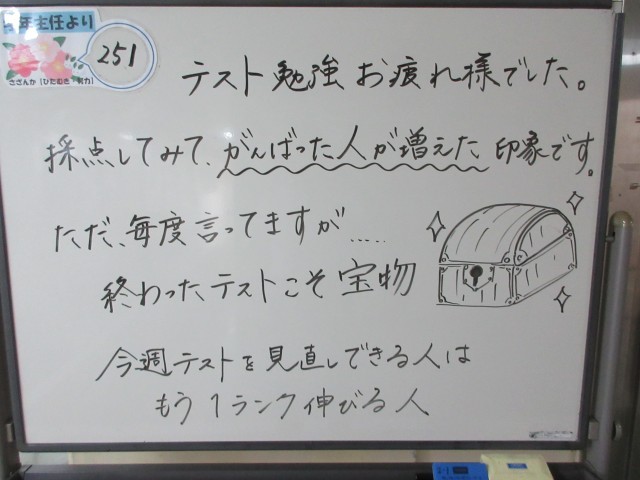 学年主任より
251
さざんか「ひたむき・努力」
テスト勉強お疲れ様でした。
採点してみて、がんばった人が増えた印象です。
ただ、毎度言ってますが……
終わったテストこそ宝物
今週テストを見直しできる人は
もう1ランク伸びる人